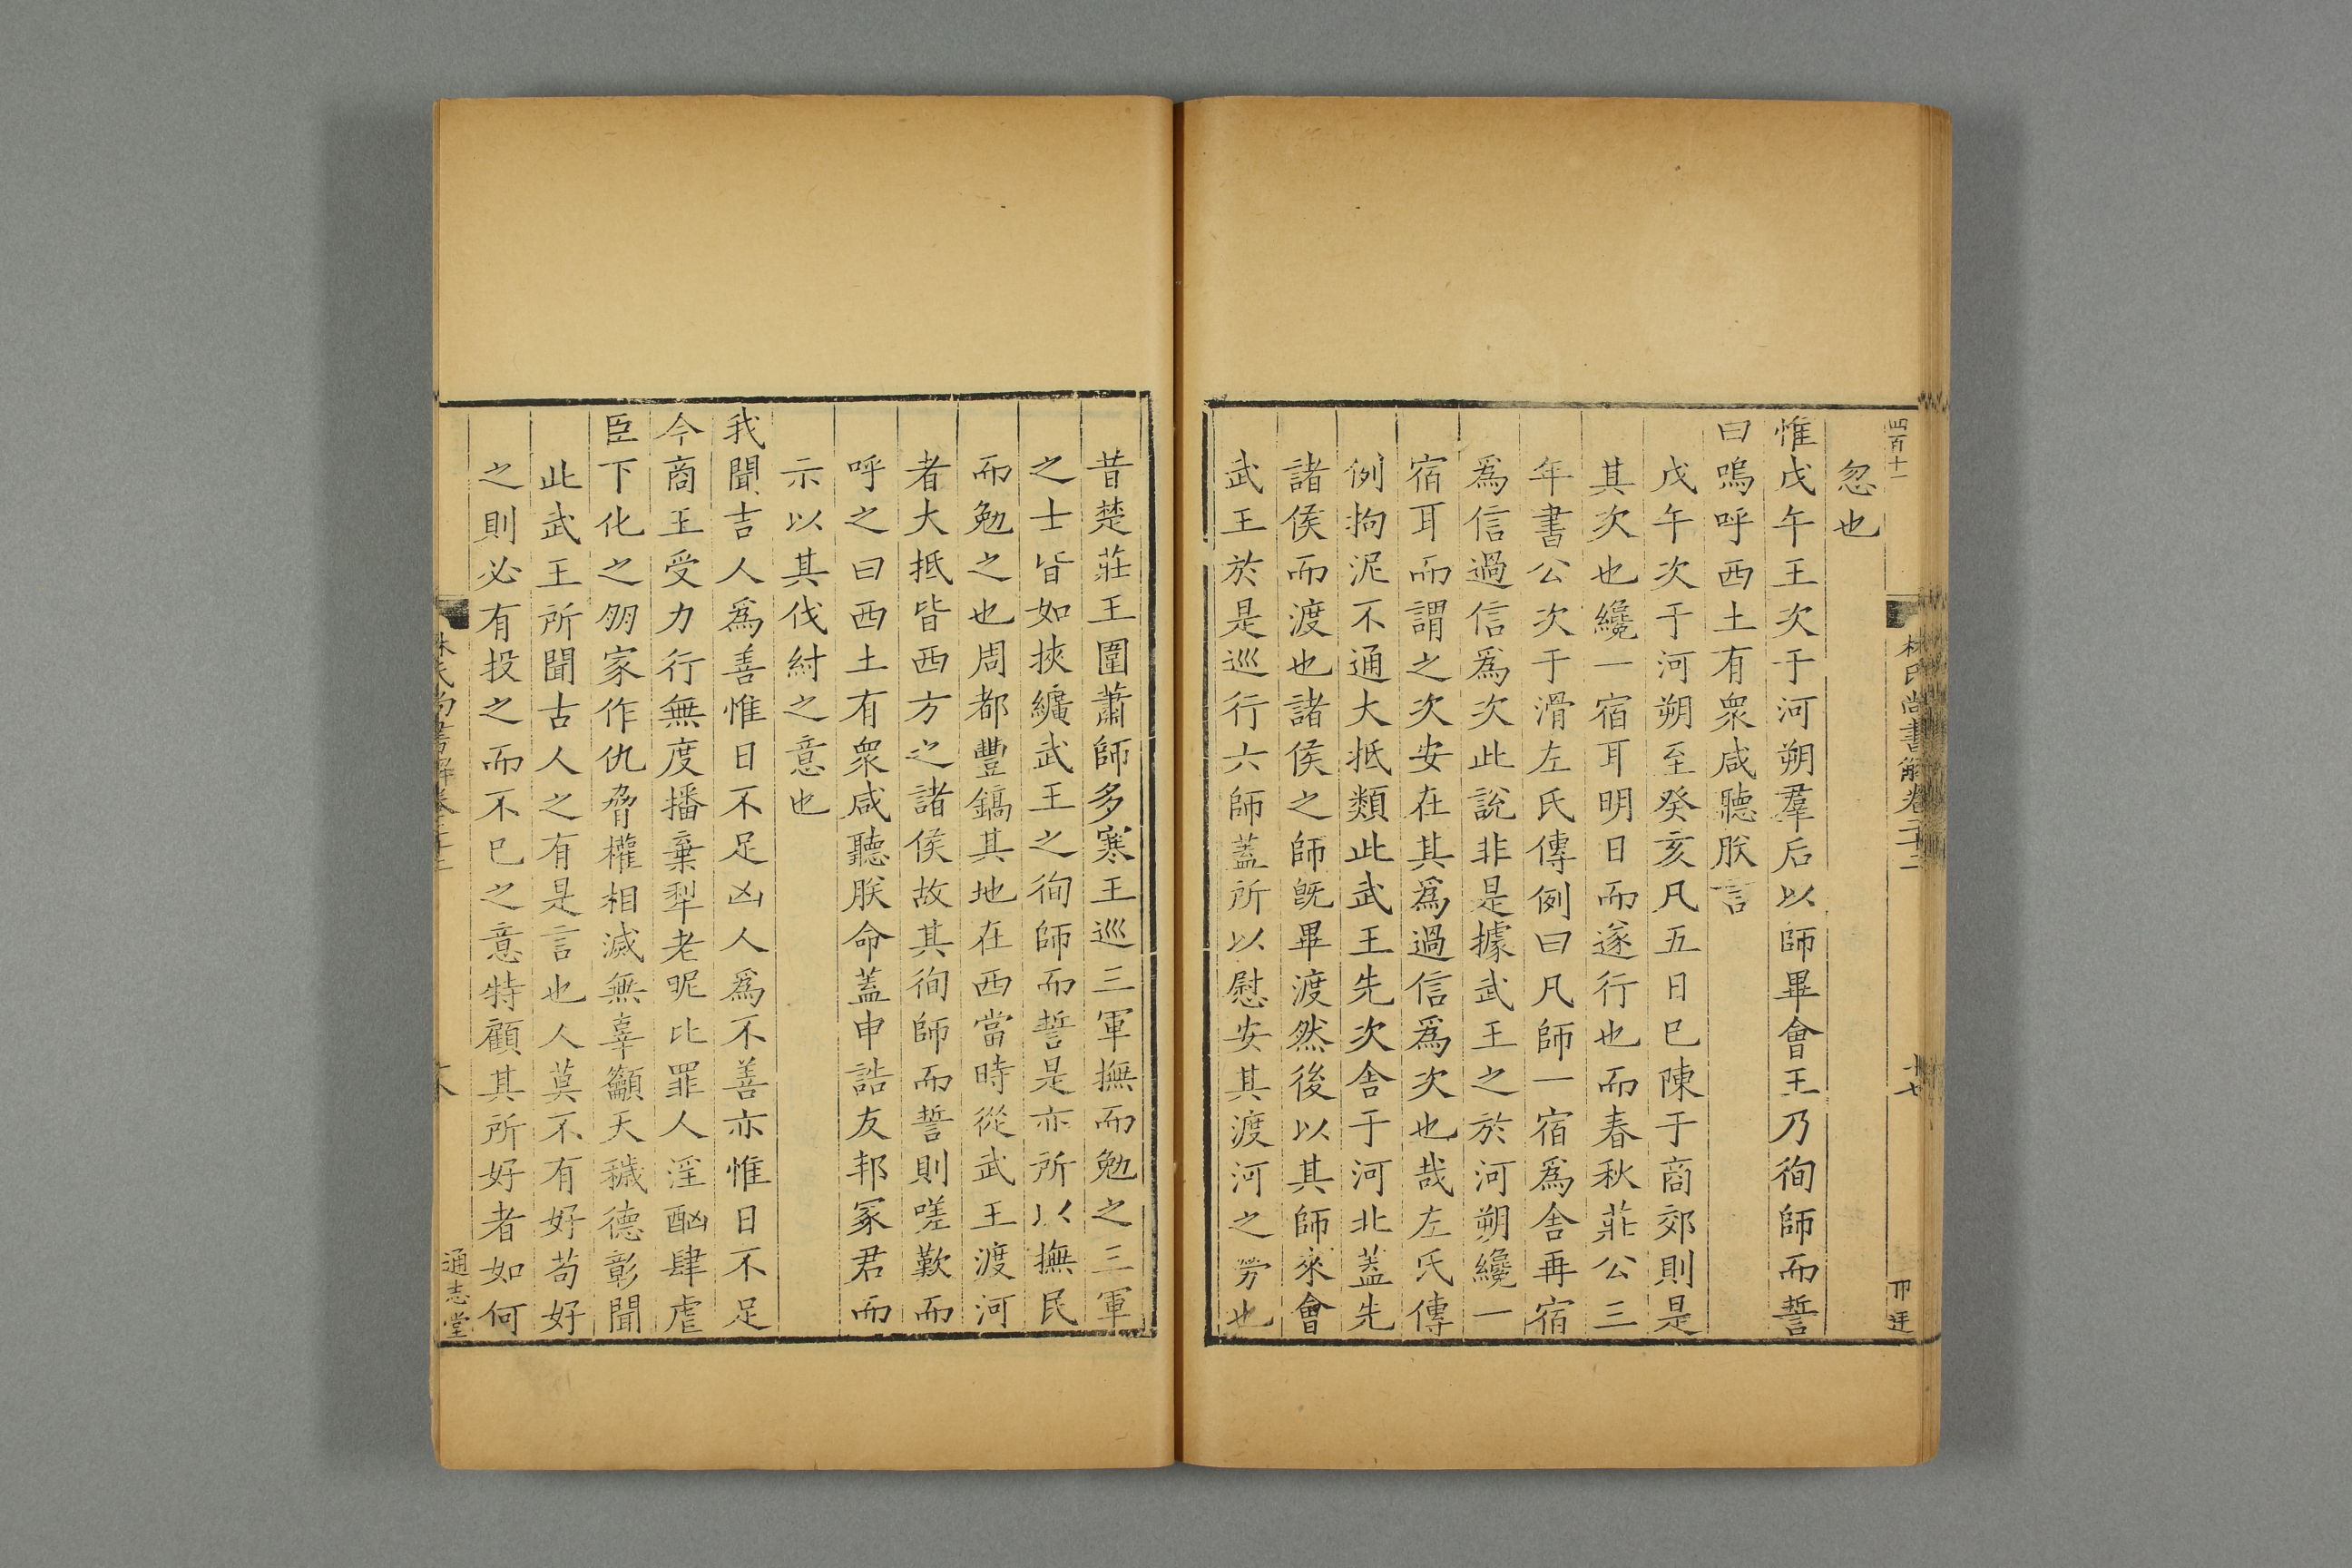 四百十一
林氏尚書解卷二十二
十七
忽也
惟戊午王次于河朔羣后以師畢會王乃徇師而誓
曰嗚呼西土有衆咸聽朕言
戊午次于河朔至癸亥凡五日巳陳于商郊則是
其次也纔一宿耳明日而遂行也而春秋莊公三
年書公次于滑左氏傳例曰凡師一宿爲舍再宿
爲信過信爲次此說非是據武王之於河朔纔一
宿耳而謂之次安在其爲過信爲次也哉左氏傳
例拘泥不通大抵類此武王先次舍于河北蓋先
諸侯而渡也諸侯之師旣畢渡然後以其師來會
武王於是巡行六師蓋所以慰安其渡河之勞也
昔楚莊王圍蕭師多寒王巡三軍撫而勉之三軍
之士皆如挾纊武王之徇師而誓是亦所以撫民
而勉之也周都豐鎬其地在西當時從武王渡河
者大抵皆西方之諸侯故其徇師而誓則嗟歎而
呼之曰西土有衆咸聽朕命蓋申誥友邦冢君而
示以其伐紂之意也
我聞吉人爲善惟日不足凶人爲不善亦惟日不足
今商王受力行無度播棄犁老昵比罪人淫酗肆虐
臣下化之朋家作仇脅權相滅無辜籲天穢德彰聞
此武王所聞古人之有是言也人莫不有好苟好
之則必有投之而不巳之意特顧其所好者如何
通志堂